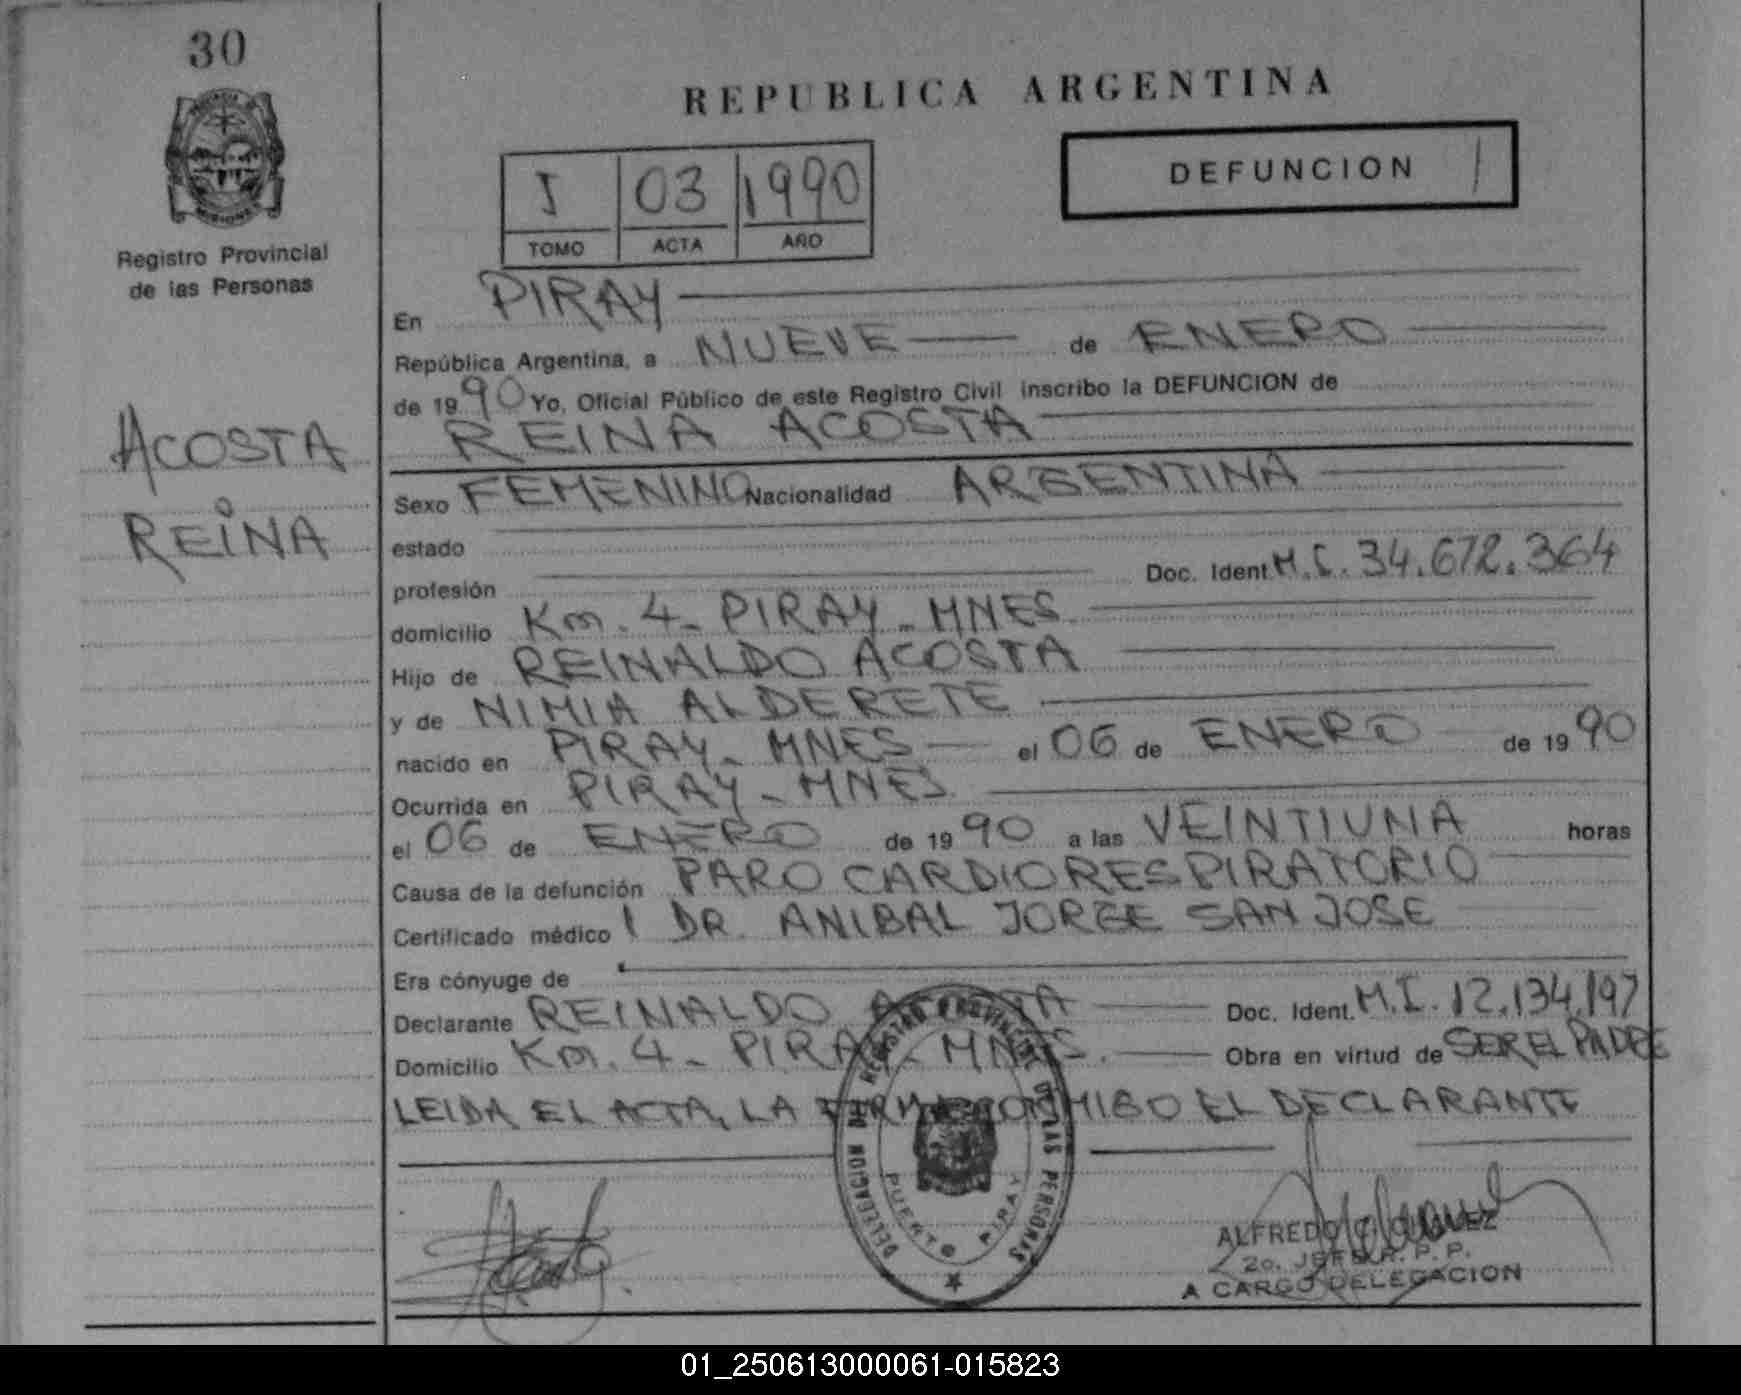 30
REPUBLICA ARGENTINA
MISIONES
Registro Provincial
de las Personas
I 03 1990
TOMO ACTA AÑO
DEFUNCION 1
ACOSTA
REINA
En PIRAY
República Argentina, a NUEVE de ENERO
de 1990 Yo, Oficial Público de este Registro Civil inscribo la DEFUNCION de
REINA ACOSTA
Sexo FEMENINO Nacionalidad ARGENTINA
estado
profesión Doc. Ident. M.I. 34.672.364
domicilio Km. 4 - PIRAY - MNES.
Hijo de REINALDO ACOSTA
y de NIMIA ALDERETE
nacido en PIRAY - MNES el 06 de ENERO de 1990
Ocurrida en PIRAY - MNES.
el 06 de ENERO de 1990 a las VEINTIUNA horas
Causa de la defunción PARO CARDIORESPIRATORIO
Certificado médico DR. ANIBAL JORGE SAN JOSE
Era cónyuge de
Declarante REINALDO ACOSTA Doc. Ident. M.I. 12.134.197
Domicilio Km. 4 - PIRAY - MNES. Obra en virtud de SER EL PADRE
LEIDA EL ACTA, LA FIRMA CONMIGO EL DECLARANTE
DELEGACION DEL REGISTRO PROVINCIAL DE LAS PERSONAS
PUERTO PIRAY
ALFREDO
2o. JEFE R. P. P.
A CARGO DELEGACION
01_250613000061-015823